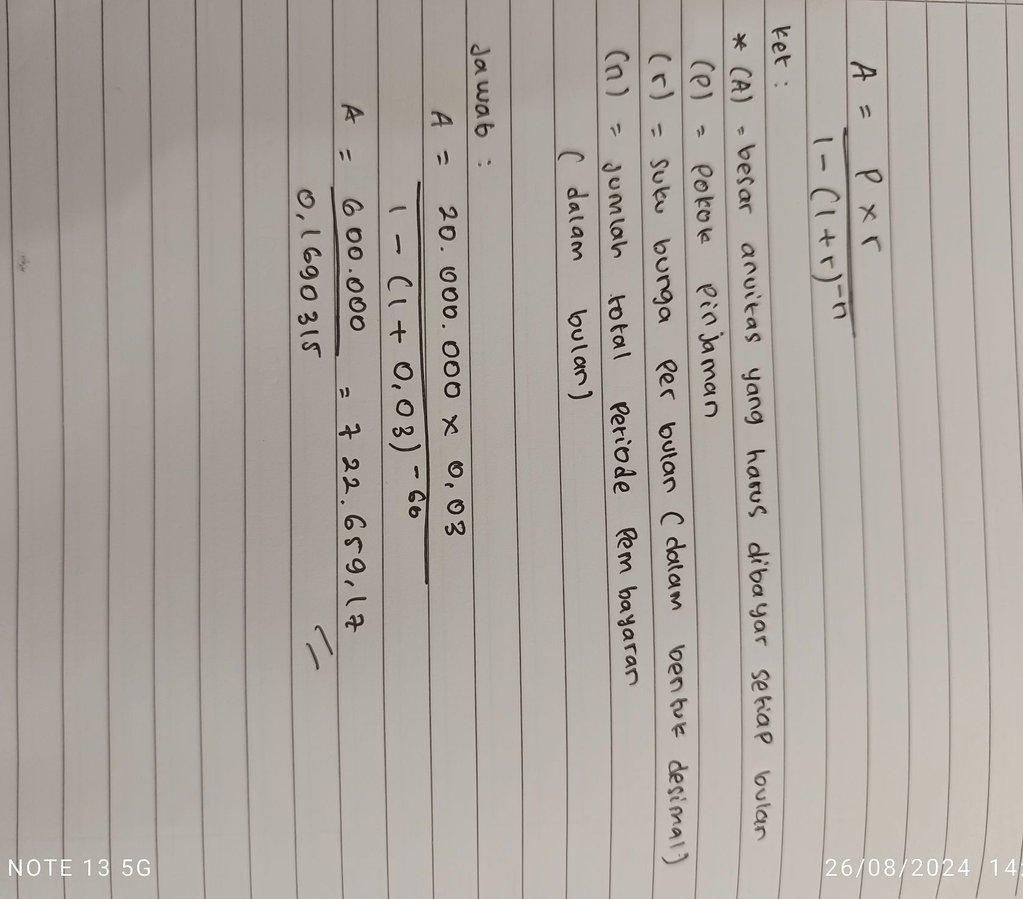 A = P x r
1 - (1 + r)^-n
Ket :
* (A) = besar anuitas yang harus dibayar setiap bulan
(P) = Pokok Pinjaman
(r) = suku bunga Per bulan (dalam bentuk desimal)
(n) = jumlah total Periode Pembayaran
(dalam bulan)
Jawab :
A = 20.000.000 x 0,03
1 - (1 + 0,03)^-60
A = 600.000 = 722.659,17
0,1690315
NOTE 13 5G
26/08/2024 14: